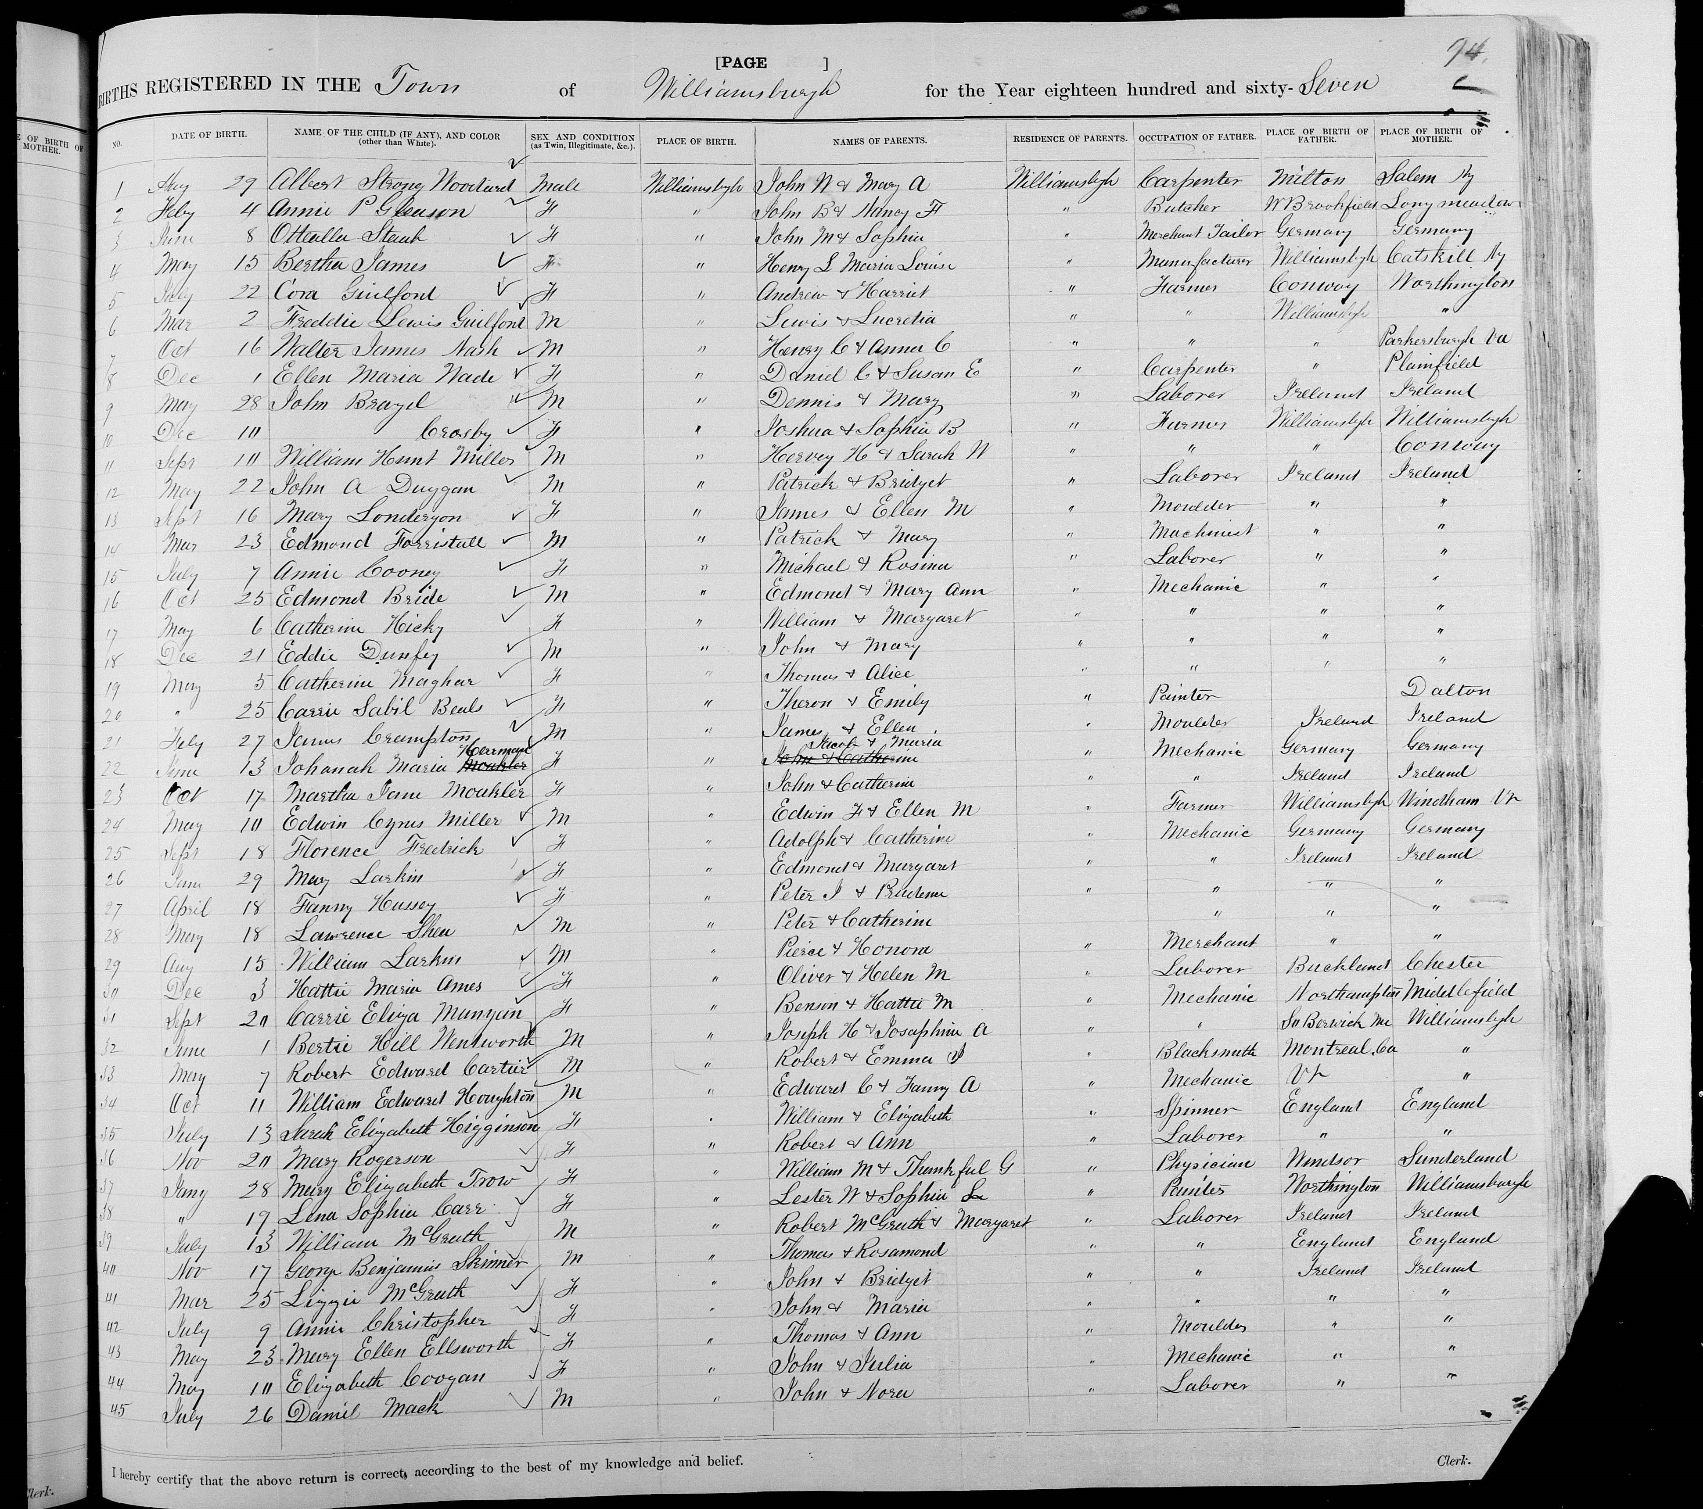 94
[PAGE ]
BIRTHS REGISTERED IN THE Town of Williamsburgh for the Year eighteen hundred and sixty-Seven
E OF BIRTH OF MOTHER.
NO. DATE OF BIRTH. NAME OF THE CHILD (IF ANY), AND COLOR (other than White). SEX AND CONDITION (as Twin, Illegitimate, &c.). PLACE OF BIRTH. NAMES OF PARENTS. RESIDENCE OF PARENTS. OCCUPATION OF FATHER. PLACE OF BIRTH OF FATHER. PLACE OF BIRTH OF MOTHER.
1 Aug 29 Albert Strong Woodard Male Williamsbgh John W & Mary A Williamsbgh Carpenter Milton Salem Ny
2 Feby 4 Annie P Gleason F " John B & Nancy F " Butcher W Brookfield Longmeadow
3 June 8 Ottealla Staub F " John M & Sophia " Merchant Tailor Germany Germany
4 May 15 Bertha James F " Henry L Maria Louise " Manufacturer Williamsbgh Catskill Ny
5 July 22 Cora Guilford F " Andrew & Harriet " Farmer Conway Worthington
6 Mar 2 Freddie Lewis Guilford M " Lewis & Lucretia " " Williamsbgh "
7 Oct 16 Walter James Nash M " Henry C & Anna C " " " Parkersburgh Va
8 Dec 1 Ellen Maria Wade F " Daniel C & Susan E " Carpenter " Plainfield
9 May 28 John Brazel M " Dennis & Mary " Laborer Ireland Ireland
10 Dec 10 Crosby F " Joshua & Sophia B " Farmer Williamsbgh Williamsbgh
11 Sept 10 William Hunt Miller M " Hervey H & Sarah W " " " Conway
12 May 22 John A Duggan M " Patrick & Bridget " Laborer Ireland Ireland
13 Sept 16 Mary Londergon F " James & Ellen M " Moulder " "
14 Mar 23 Edmond Forristall M " Patrick & Mary " Machinist " "
15 July 7 Annie Cooney F " Michael & Rosina " Laborer " "
16 Oct 25 Edmond Bride M " Edmond & Mary Ann " Mechanic " "
17 May 6 Catherine Hicky F " William & Margaret " " " "
18 Dec 21 Eddie Dunfey M " John & Mary " " " "
19 May 5 Catherine Maghar F " Thomas & Alice " " " "
20 " 25 Carrie Sabil Beals F " Theron & Emily " Painter Dalton
21 July 27 James Crompton M " James & Ellen " Moulder Ireland Ireland
22 June 13 Johanah Maria Moakler Herrman F " John & Catherine Jacob & Maria " Mechanic Germany Germany
23 Oct 17 Martha Jane Moakler F " John & Catherine " " Ireland Ireland
24 May 10 Edwin Cyrus Miller M " Edwin F & Ellen M " Farmer Williamsbgh Windham Vt
25 Sept 18 Florence Fredrick F " Adolph & Catherine " Mechanic Germany Germany
26 June 29 May Larkin F " Edmond & Margaret " " Ireland Ireland
27 April 18 Fanny Hussey F " Peter J & Prudence " " " "
28 May 18 Lawrence Shea M " Peter & Catherine " " "
29 Aug 15 William Larkin M " Pierce & Honora " Merchant " "
30 Dec 3 Hattie Maria Ames F " Oliver & Helen M " Laborer Buckland Chester
31 Sept 20 Carrie Eliza Munyan F " Benson & Hattie M " Mechanic Northampton Middlefield
32 June 1 Bertie Hill Wentworth M " Joseph H & Josaphine A " " So Berwick Me Williamsbgh
33 May 7 Robert Edward Cartier M " Robert & Emma J " Blacksmith Montreal Ca "
34 Oct 11 William Edward Houghton M " Edward C & Fanny A " Mechanic Vt "
35 July 13 Sarah Elizabeth Higginson F " William & Elizabeth " Spinner England England
36 Nov 20 Mary Rogerson F " Robert & Ann " Laborer " "
37 Jany 28 Mary Elizabeth Trow F " William M & Thankful G " Physician Windsor Sunderland
38 " 19 Lena Sophia Carr F " Lester W & Sophia L " Painter Worthington Williamsburgh
39 July 13 William McGrath M " Robert McGrath & Margaret " Laborer Ireland Ireland
40 Nov 17 George Benjamin Skinner M " Thomas & Rosamond " " England England
41 Mar 25 Lizzie McGrath F " John & Bridget " " Ireland Ireland
42 July 9 Annie Christopher F " John & Maria " " " "
43 May 23 Mary Ellen Ellsworth F " Thomas & Ann " Moulder " "
44 May 10 Elizabeth Coogan F " John & Julia " Mechanic " "
45 July 26 Daniel Mack M " John & Nora " Laborer " "
I hereby certify that the above return is correct, according to the best of my knowledge and belief.
Clerk.
Clerk.